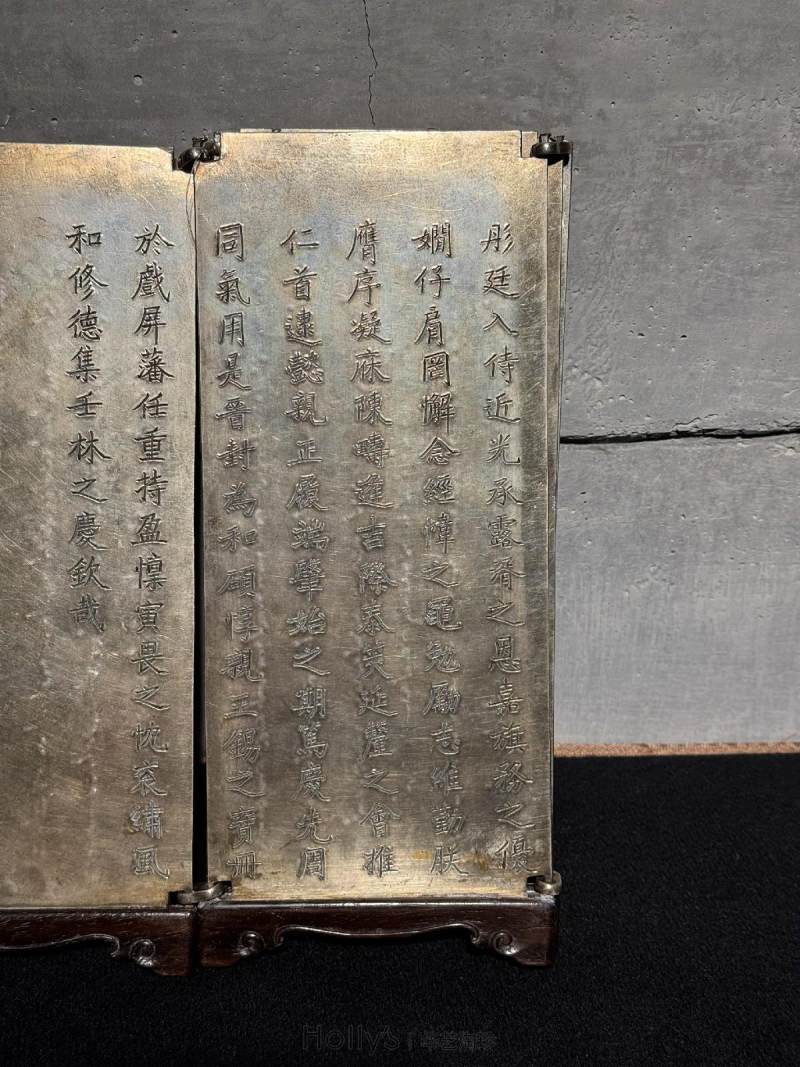 彤廷入侍近光承露湑之恩嘉旗務之優
嫺仔肩罔懈念經幃之黽勉勵志維勤朕
膺序凝庥陳疇進吉際泰莢延釐之會推
仁首逮懿親正履端肇始之期篤慶先周
同氣用是晉封為和碩惇親王錫之寶冊
於戲屏藩任重持盈懍寅畏之忱袞繡風
和修德集壬林之慶欽哉
Holly's